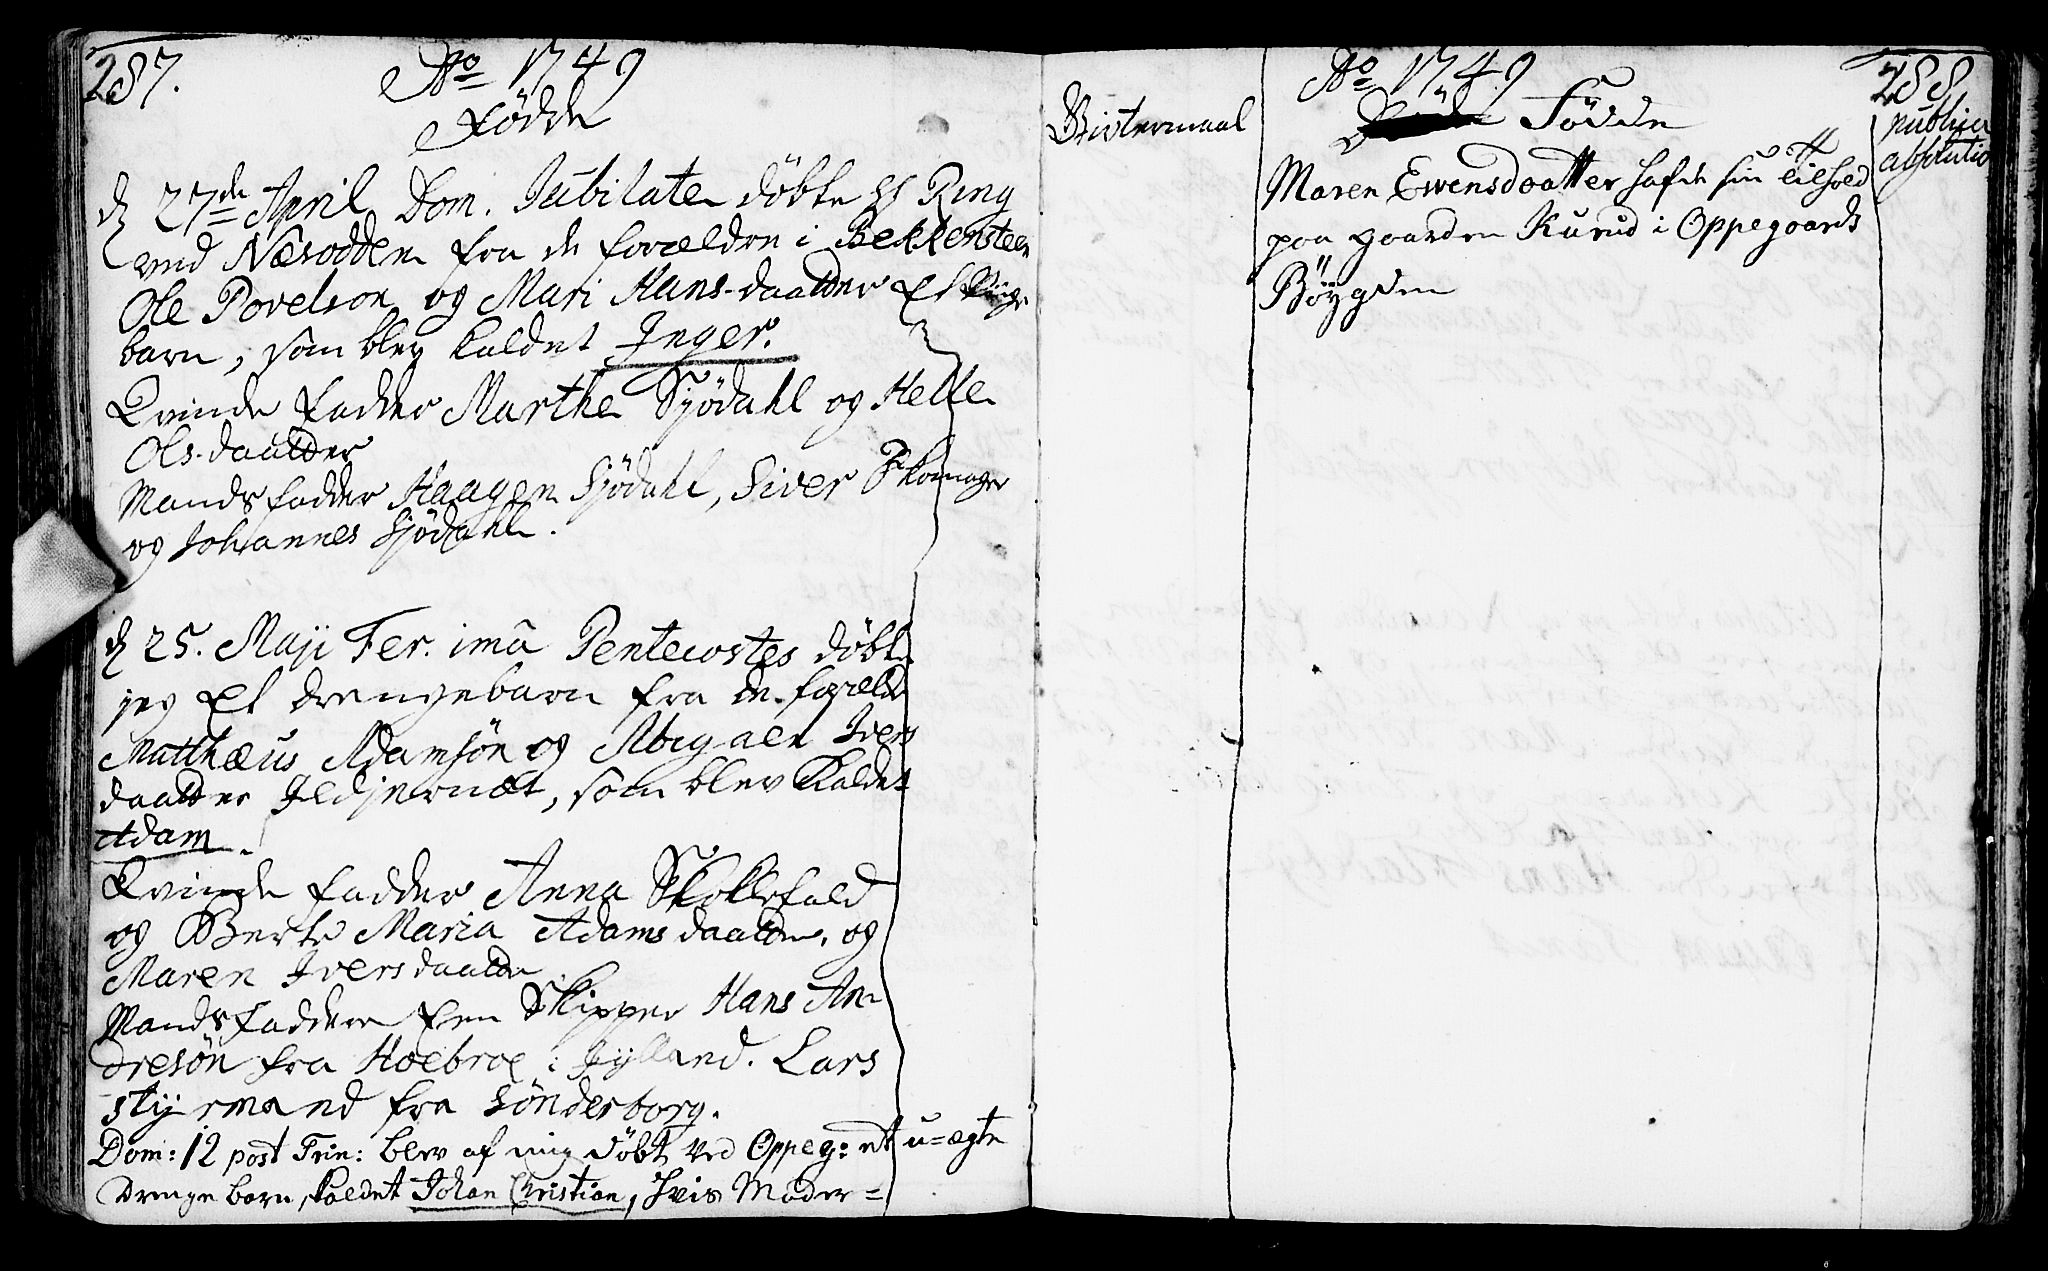 287.
Ao 1749
Fødde
d 27de April Dom. Jubilate døbte H Ring
ved Næsodden fra de forældre i Bekkensteen
Ole Povelson og Mari Hans-daatter Et Pige
barn, som blev kaldet Inger.
Qvinde fadder Marthe Sjödahl og Helle
Ols-daatter
Mands fadder Haagen Sjödahl, Siver Skomager
og Johannes Sjödahl.
d 25. Maji Fer. imâ Pentecostes döbte
jeg Et drengebarn fra de forælde
Matthæus Adamsön og Abigael Ivers
daatter Ildjernæt, som blev kaldet
Adam.
Qvinde fadder Anna Skoklefald
og Berte Maria Adams daatter, og
Maren Iversdaatter
Mands faddere Een Skipper Hans An-
dresön fra Hoebroe i Jylland. Lars
styrmand fra Sönderborg.
Dom: 12 post Trin: blev af mig döbt ved Oppeg: et u=ægte
drenge barn, kaldet Johan Christian, hvis Moder=
Ao 1749
288
Givtermaal
Födde
publica
absolutio
Maren Evensdaatter hafde sin tilhold
paa gaarden Kurud i Oppegaards
Böygden